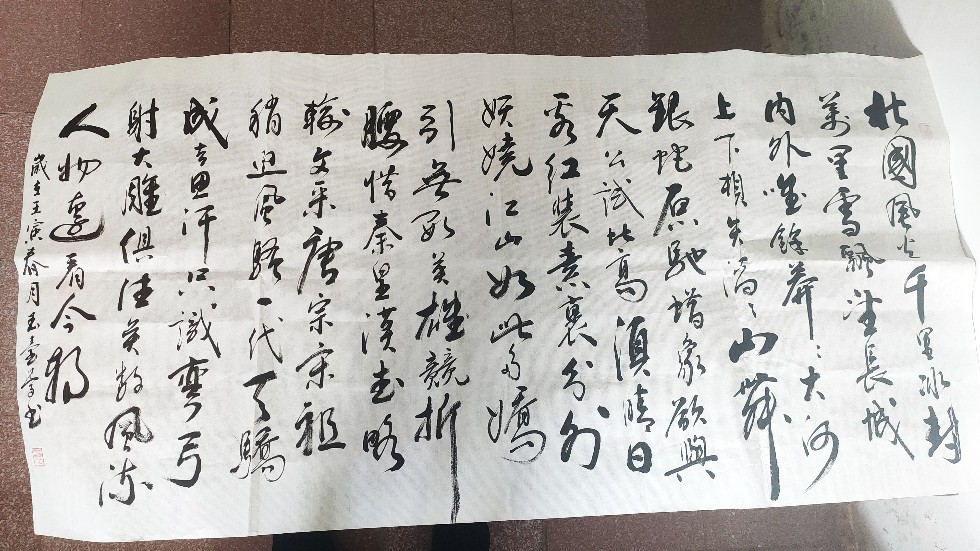 北國風光千里冰封
萬里雪飄望長城
內外唯餘莽〻大河
上下頓失滔〻山舞
銀蛇原馳蠟象欲與
天公試比高須晴日
看紅裝素裹分外
妖嬈江山如此多嬌
引無數英雄競折
腰惜秦皇漢武略
輸文采唐宗宋祖
稍遜風騷一代天驕
成吉思汗只識彎弓
射大雕俱往矣數風流
人物還看今朝
歲在壬寅春月